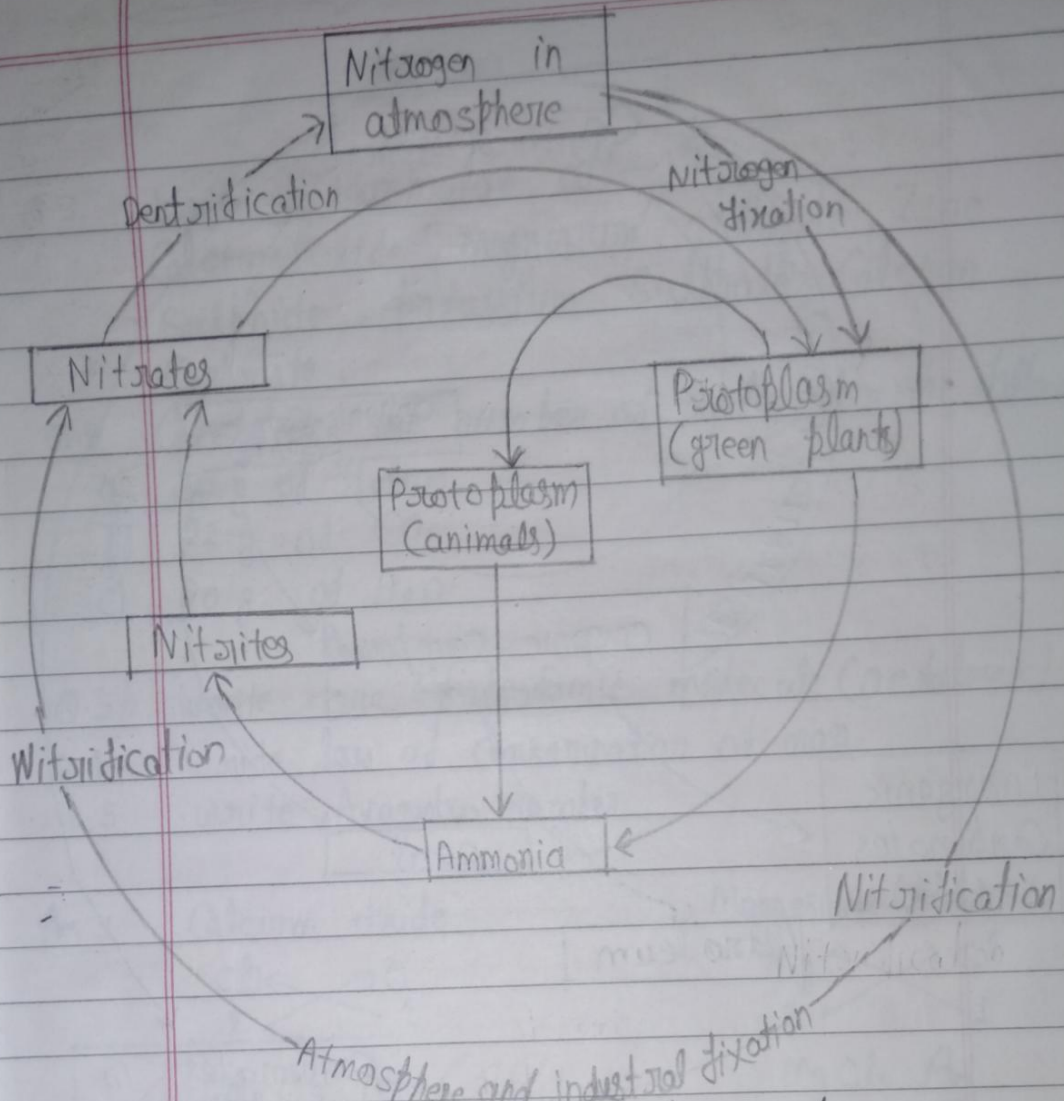 Nitrogen in
atmosphere
Dentrification
Nitrogen
fixation
Nitrates
Protoplasm
(green plants)
Protoplasm
(animals)
Nitrites
Nitrification
Ammonia
Nitrification
Atmosphere and industrial fixation